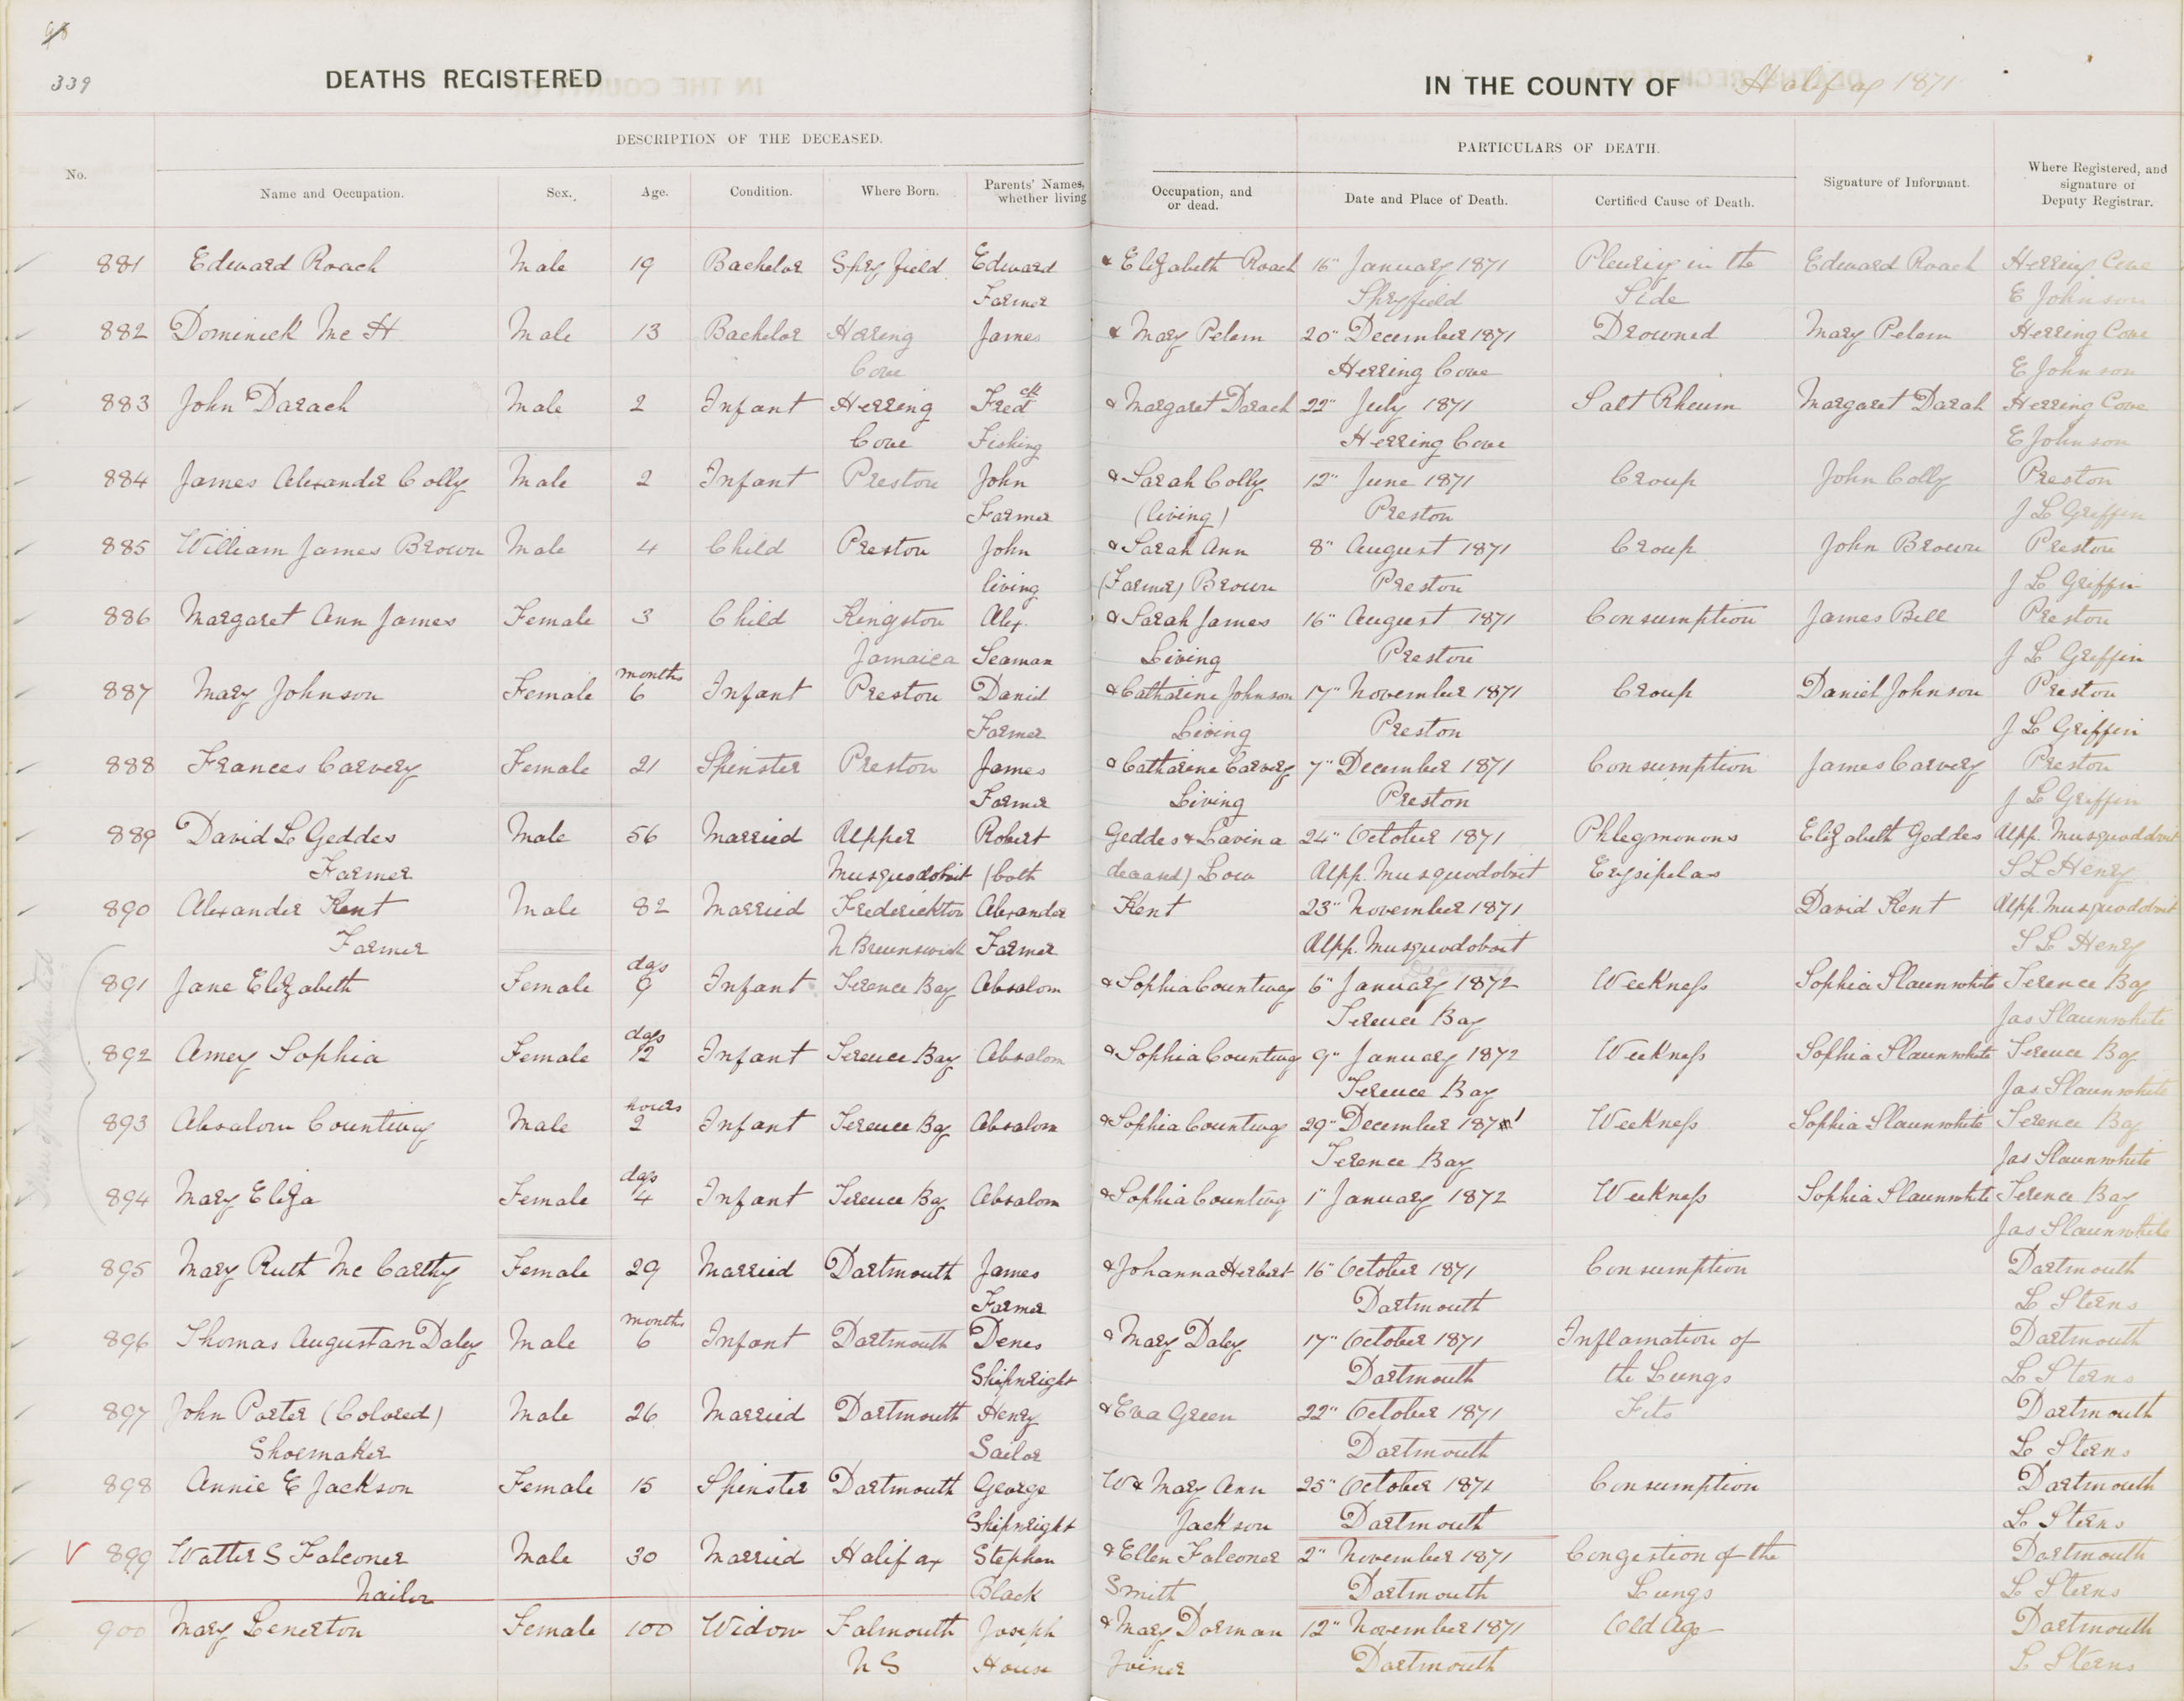 98
339
DEATHS REGISTERED IN THE COUNTY OF Halifax 1871
DESCRIPTION OF THE DECEASED. PARTICULARS OF DEATH.
No. Name and Occupation. Sex. Age. Condition. Where Born. Parents' Names, whether living Occupation, and or dead. Date and Place of Death. Certified Cause of Death. Signature of Informant. Where Registered, and signature of Deputy Registrar.
881 Edward Roach Male 19 Bachelor Spryfield Edward & Elizabeth Roach 16" January 1871 Pleurisy in the Edward Roach Herring Cove
Farmer Spryfield Side E Johnson
882 Dominick Mc H Male 13 Bachelor Herring James & Mary Pelem 20" December 1871 Drowned Mary Pelem Herring Cove
Cove Herring Cove E Johnson
883 John Darach Male 2 Infant Herring Fredck & Margaret Darach 22" July 1871 Salt Rheum Margaret Darah Herring Cove
Cove Fishing Herring Cove E Johnson
884 James Alexander Colly Male 2 Infant Preston John & Sarah Colly 12" June 1871 Croup John Colly Preston
Farmer (living) Preston J L Griffin
885 William James Brown Male 4 Child Preston John & Sarah Ann 8" August 1871 Croup John Brown Preston
living (Farmer) Brown Preston J L Griffin
886 Margaret Ann James Female 3 Child Kingston Alex. & Sarah James 16" August 1871 Consumption James Bell Preston
Jamaica Seaman Living Preston J L Griffin
887 Mary Johnson Female months 6 Infant Preston Daniel & Catharine Johnson 17" November 1871 Croup Daniel Johnson Preston
Farmer Living Preston J L Griffin
888 Frances Carvery Female 21 Spinster Preston James & Catharine Carvery 7" December 1871 Consumption James Carvery Preston
Farmer Living Preston J L Griffin
889 David L Geddes Male 56 Married Upper Robert Geddes & Lavina 24" October 1871 Phlegmonons Elizabeth Geddes Upp. Musquodoboit
Farmer Musquodoboit (both deaand) Low Upp. Musquodoboit Erysipelas S L Henry
890 Alexander Kent Male 82 Married Frederickton Alexander Kent 23" November 1871 David Kent Upp. Musquodoboit
Farmer N Brunswick Farmer Upp. Musquodoboit S L Henry
891 Jane Elizabeth Female days 9 Infant Terence Bay Absalom & Sophia Countway 6" January 1872 Weekness Sophia Slaunwhite Terence Bay
Terence Bay Jas Slaunwhite
892 Amey Sophia Female days 12 Infant Terence Bay Absalom & Sophia Countway 9" January 1872 Weekness Sophia Slaunwhite Terence Bay
Terence Bay Jas Slaunwhite
893 Absalom Countway Male hours 2 Infant Terence Bay Absalom & Sophia Countway 29" December 1871 Weekness Sophia Slaunwhite Terence Bay
Terence Bay Jas Slaunwhite
894 Mary Eliza Female days 4 Infant Terence Bay Absalom & Sophia Countway 1" January 1872 Weekness Sophia Slaunwhite Terence Bay
Jas Slaunwhite
895 Mary Ruth Mc Carthy Female 29 Married Dartmouth James & Johanna Herbert 16" October 1871 Consumption Dartmouth
Farmer Dartmouth L Sterns
896 Thomas Augustan Daley Male months 6 Infant Dartmouth Denes & Mary Daley 17" October 1871 Inflamation of Dartmouth
Shipwright Dartmouth the Lungs L Sterns
897 John Porter (Colored) Male 26 Married Dartmouth Henry & Eva Green 22" October 1871 Fits Dartmouth
Shoemaker Sailor Dartmouth L Sterns
898 Annie E Jackson Female 15 Spinster Dartmouth George W & Mary Ann 25" October 1871 Consumption Dartmouth
Shipwright Jackson Dartmouth L Sterns
V 899 Walter S Falconer Male 30 Married Halifax Stephen & Ellen Falconer 2" November 1871 Congestion of the Dartmouth
Nailor Black Smith Dartmouth Lungs L Sterns
900 Mary Lenerton Female 100 Widow Falmouth Joseph & Mary Dorman 12" November 1871 Old Age Dartmouth
N S House Joiner Dartmouth L Sterns